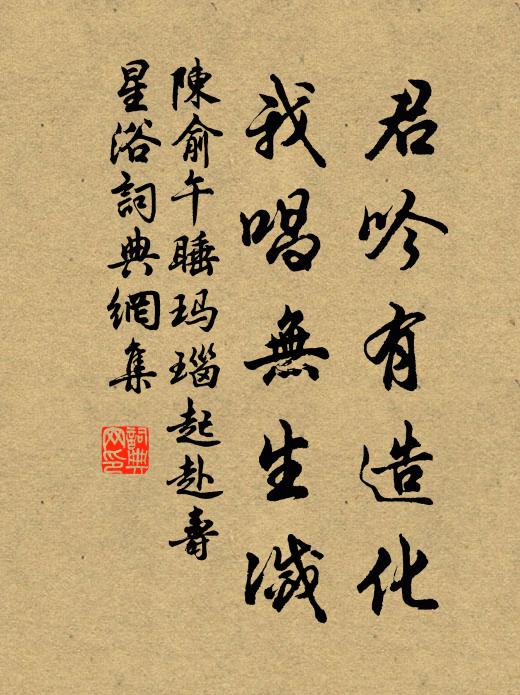 君吟有造化
我唱無生滅
陳俞午睡玛瑙起赴壽
星浴詞典網集
詞典网印